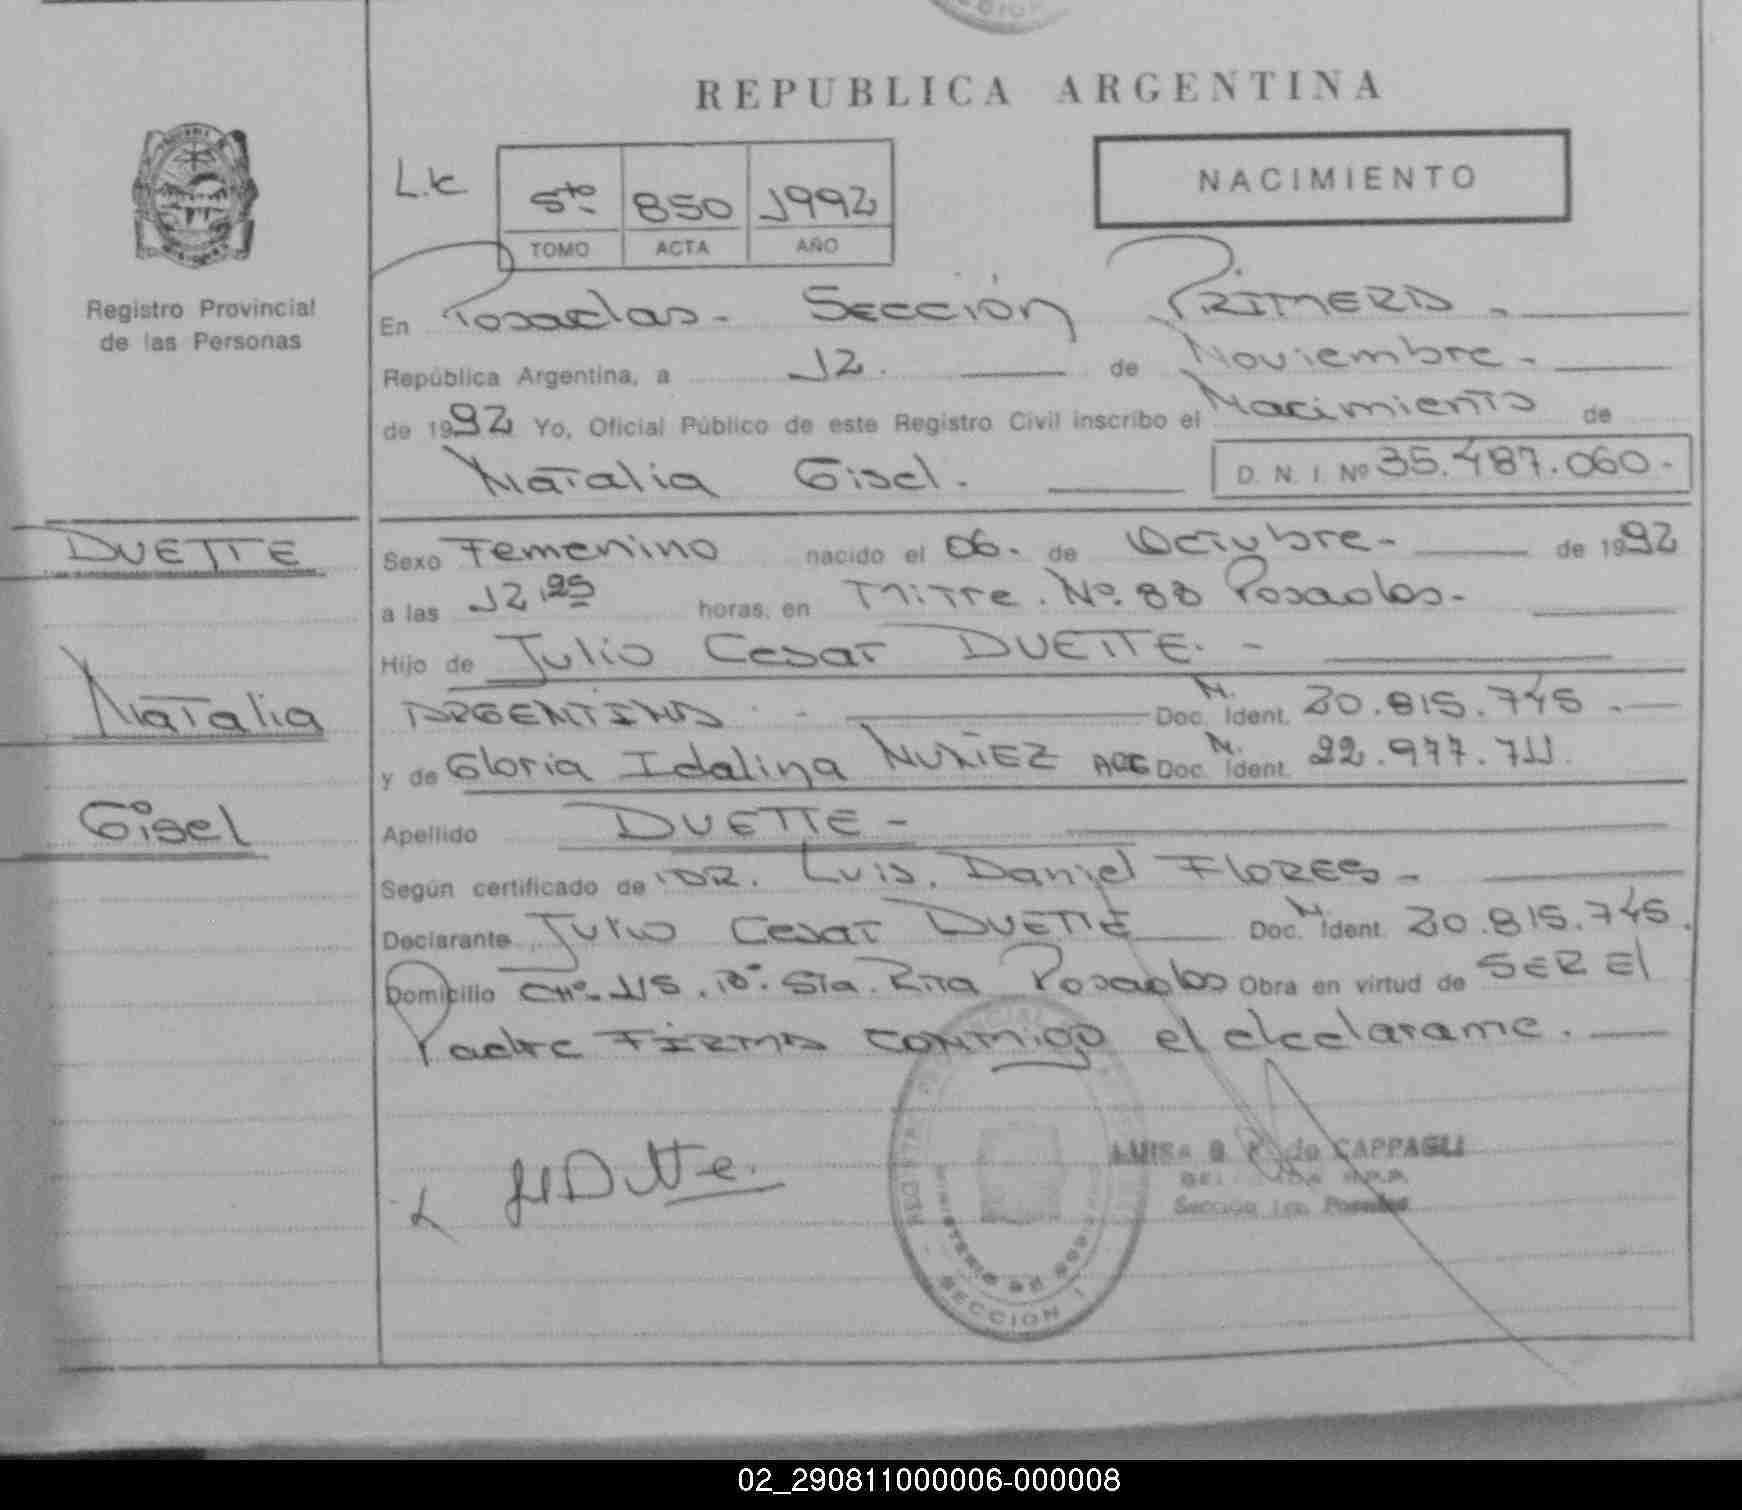 REPUBLICA ARGENTINA
L.k
5to 850 1992
TOMO ACTA AÑO
NACIMIENTO
Registro Provincial
de las Personas
En Posadas - Sección PRIMERA.
República Argentina, a 12. de Noviembre -
de 1992 Yo, Oficial Público de este Registro Civil inscribo el Nacimiento de
Natalia Gisel. D. N. I. Nº 35.487.060.
DUETTE
Natalia
Gisel
Sexo Femenino nacido el 06. de Octubre - de 1992
a las 12,25 horas, en Mitre. Nº. 88 Posadas.-
Hijo de Julio Cesar DUETTE. -
ARGENTINA - Doc. Ident. N. 20.815.745.
y de Gloria Idalina NUÑEZ ARG Doc. Ident. N. 22.977.711.
Apellido DUETTE -
Según certificado de DR. Luis, Daniel FLORES -
Declarante Julio Cesar DUETTE Doc. Ident. N. 20.815.745.
Domicilio CHº. 115. Bº. Sta. Rita Posadas Obra en virtud de SER El
Padre FIRMA CONMigo el declarante.
LUISA de CAPPAGLI
Sección 1ra. Posadas
MINISTERIO DE GOBIERNO
SECCION 1
02_290811000006-000008